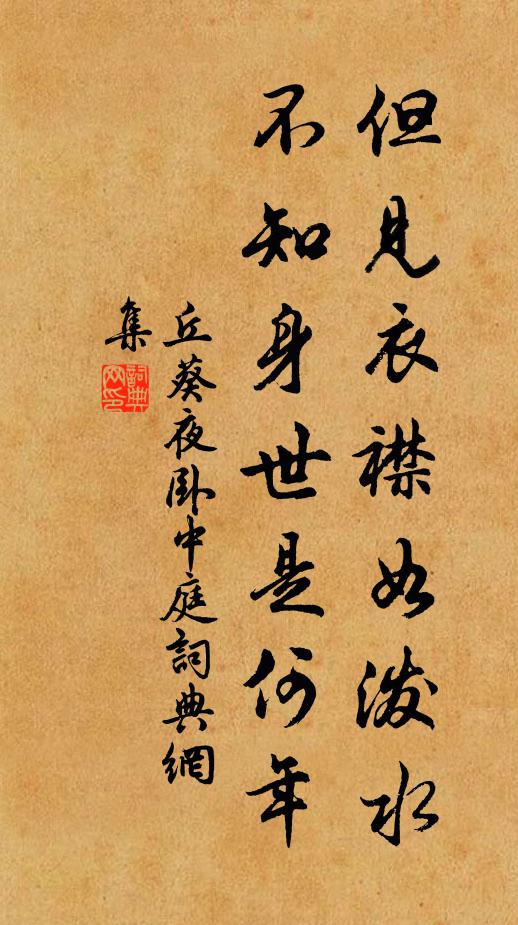 但見衣襟如潑水
不知身世是何年
丘葵夜卧中庭詞典網
集
詞典
网印